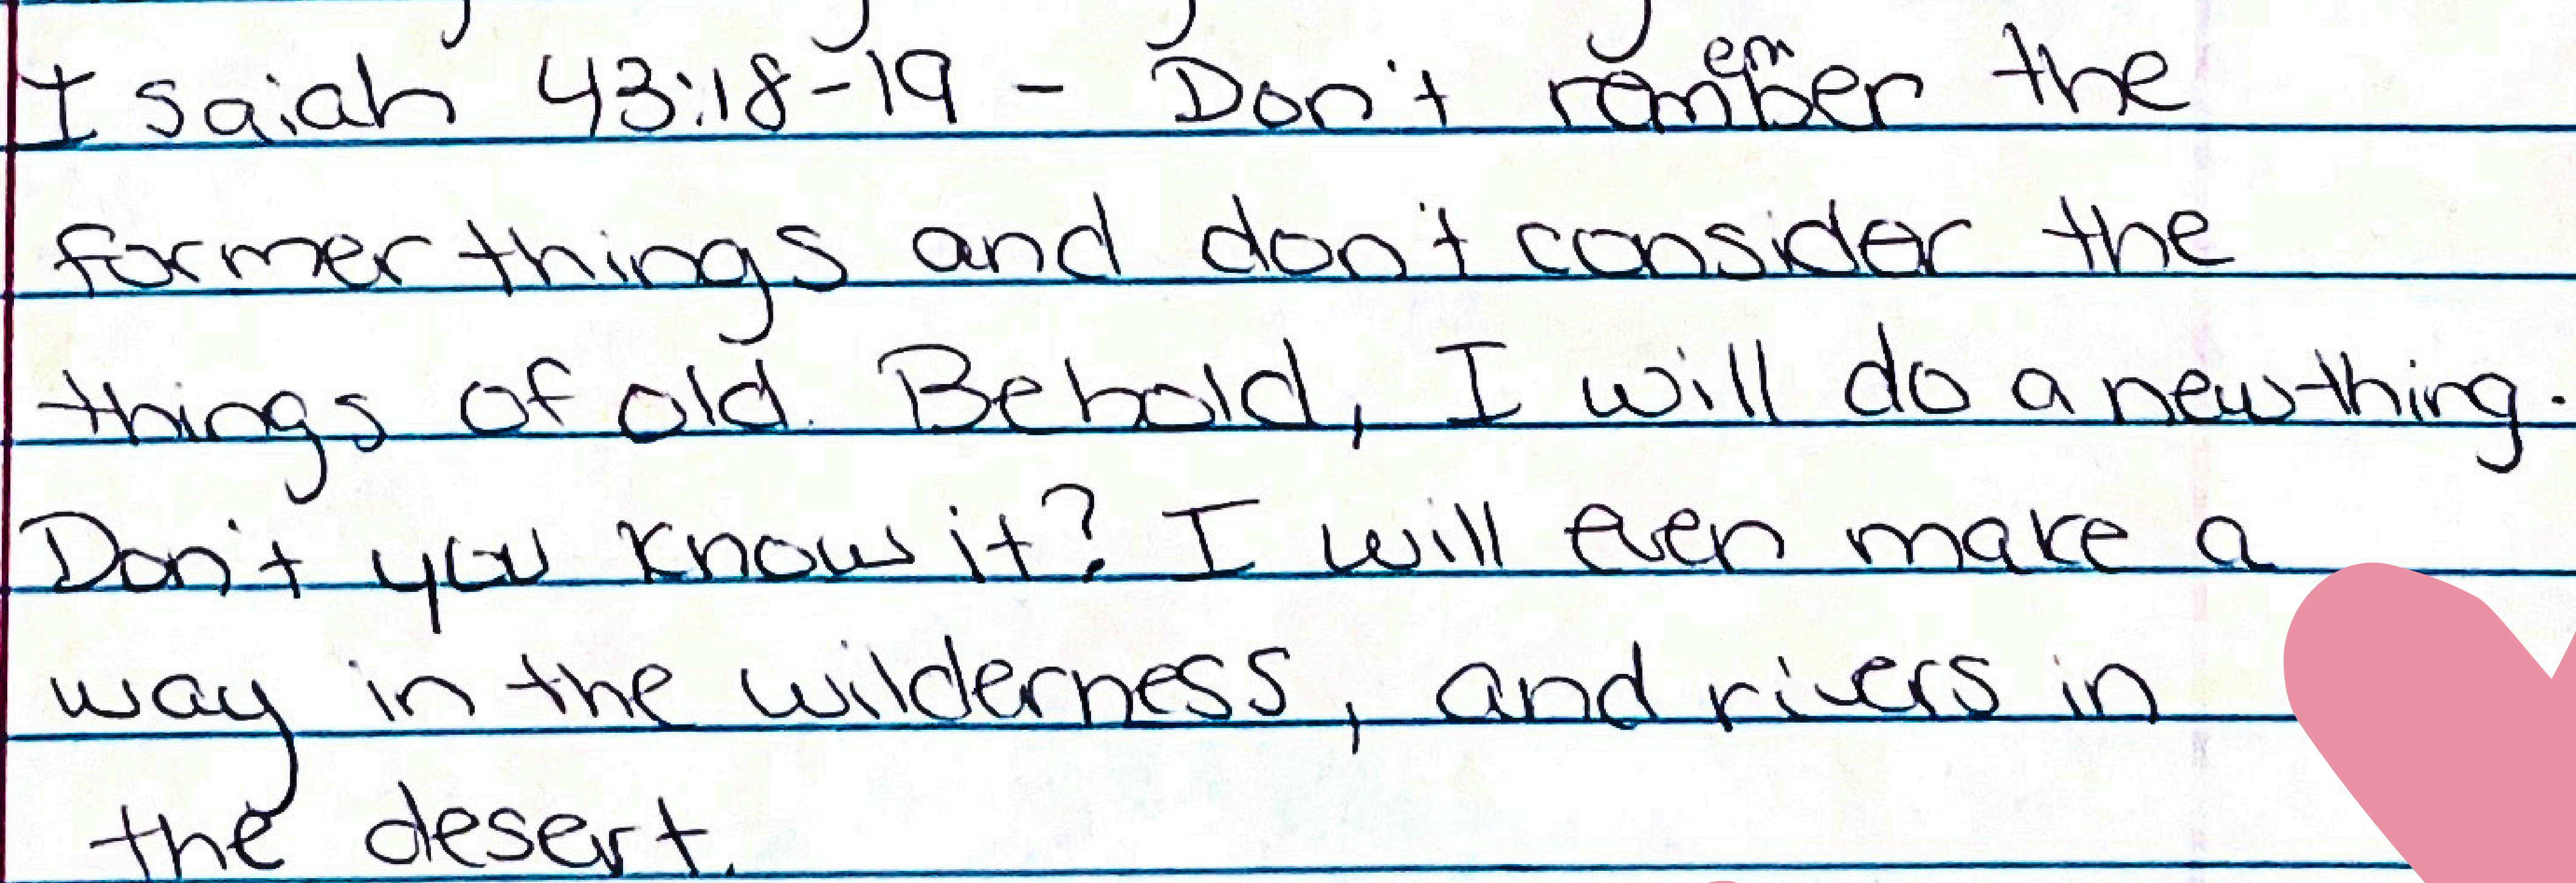 Isaiah 43:18-19 - Don't remember the
former things and don't consider the
things of old. Behold, I will do a new thing.
Don't you know it? I will even make a
way in the wilderness, and rivers in
the desert.